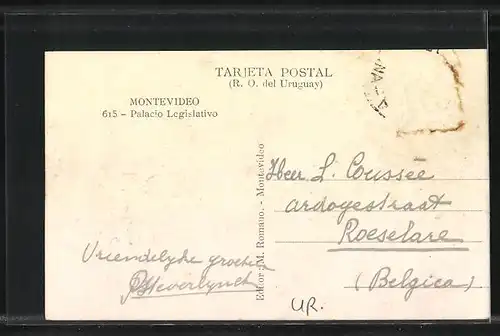 TARJETA POSTAL
(R. O. del Uruguay)
MONTEVIDEO
615 - Palacio Legislativo
Editor: M. Romano. - Montevideo
Heer L. Coussee
Ardoyestraat
Roeselare
(Belgica)
Vriendelyke groeten
UR.